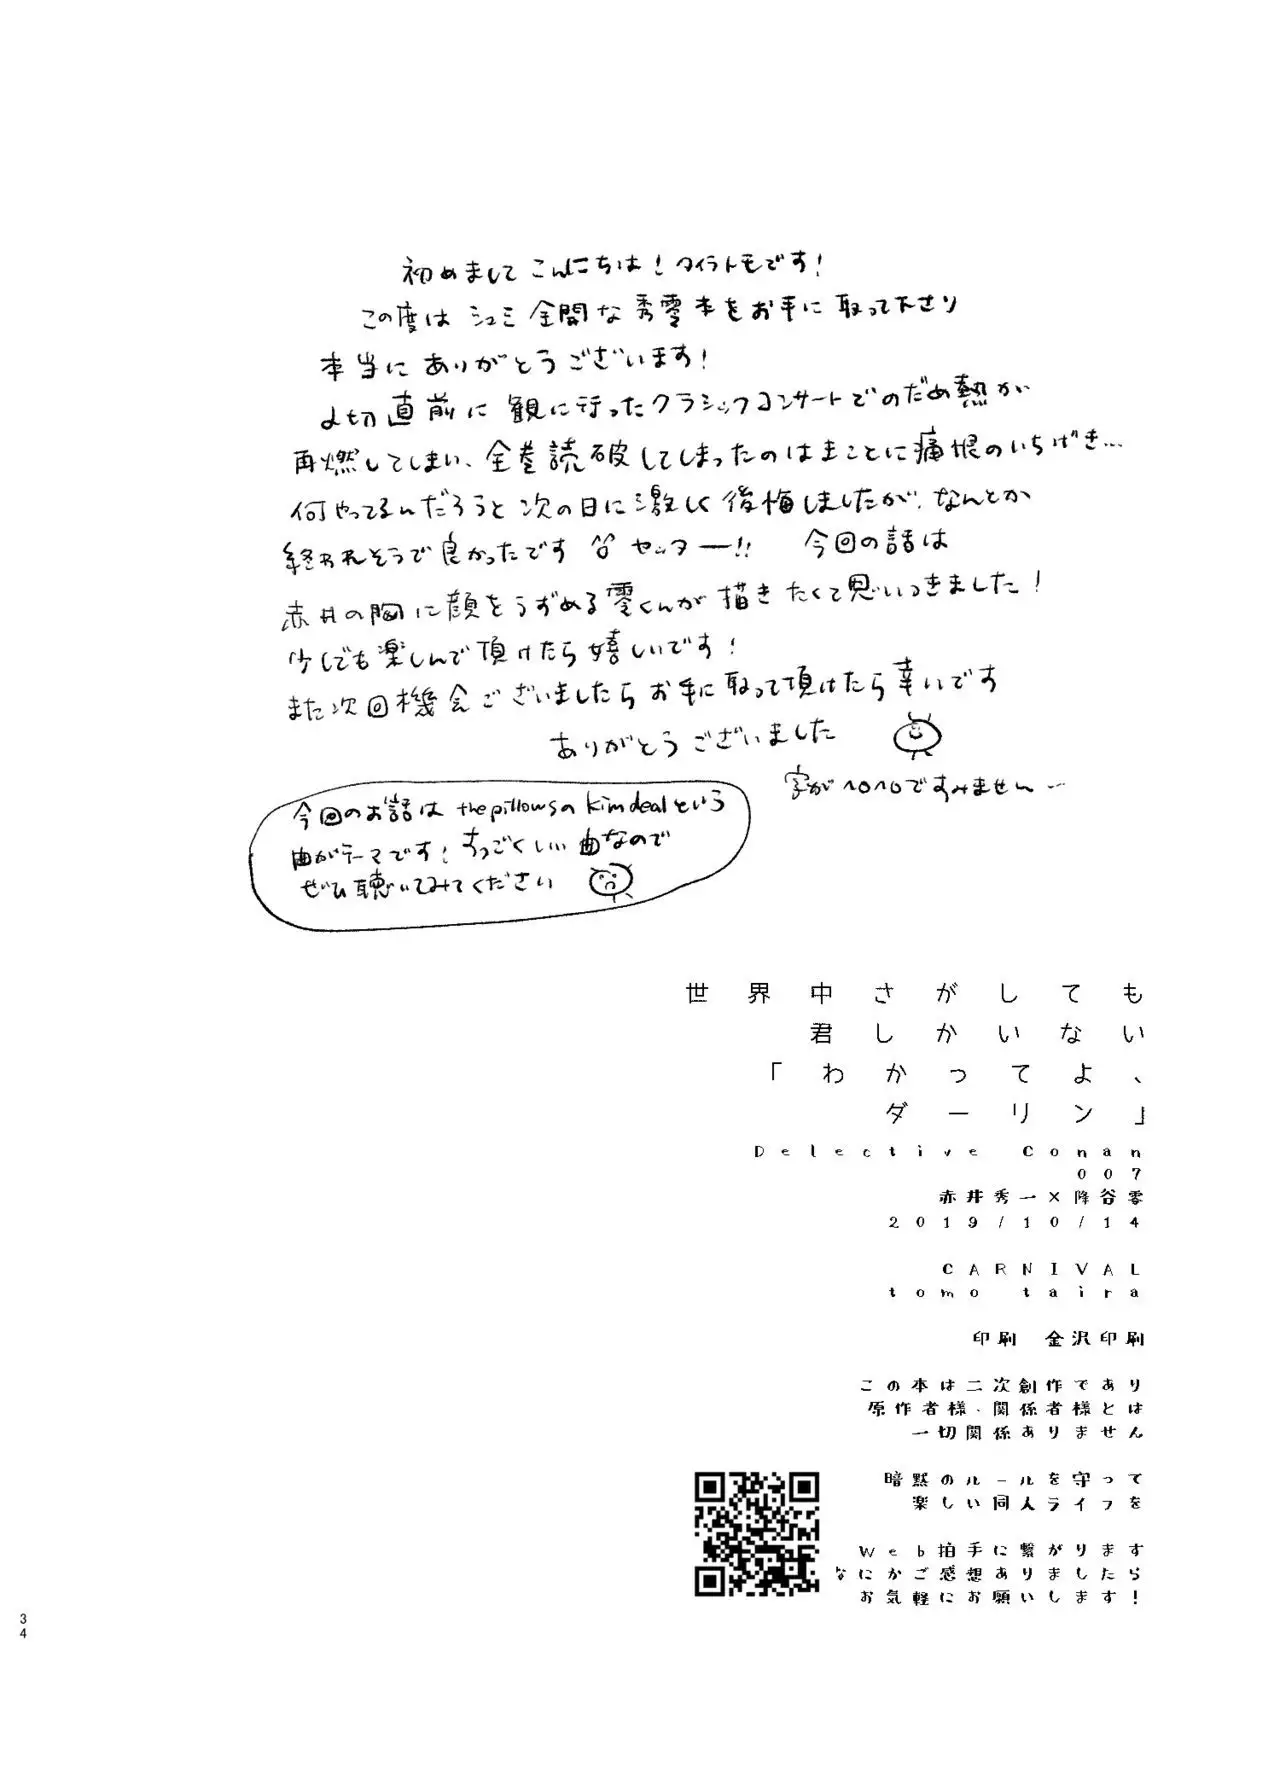 初めまして こんにちは！タイラトモです！
この度は シュミ全開な秀零本をお手に取って下さり
本当に ありがとうございます！
〆切直前に観に行ったクラシックコンサートでのだめ熱が
再燃してしまい、全巻読破してしまったのはまことに痛恨のいちげき…
何やってるんだろうと次の日に激しく後悔しましたが、なんとか
終われそうで良かったです ヤッター！！ 今回の話は
赤井の胸に顔をうずめる零くんが描きたくて思いつきました！
少しでも楽しんで頂けたら嬉しいです！
また次回機会ございましたらお手に取って頂けたら幸いです
ありがとうございました
字がヘロヘロですみません…
今回のお話は the pillowsの kim dealという
曲がテーマです！すっごくいい曲なので
ぜひ聴いてみてください
世界中さがしても
君しかいない
「わかってよ、
ダーリン」
Detective Conan
007
赤井秀一×降谷零
2019/10/14
CARNIVAL
tomo taira
印刷 金沢印刷
この本は二次創作であり
原作者様、関係者様とは
一切関係ありません
暗黙のルールを守って
楽しい同人ライフを
Web拍手に繋がります
なにかご感想ありましたら
お気軽にお願いします！
34